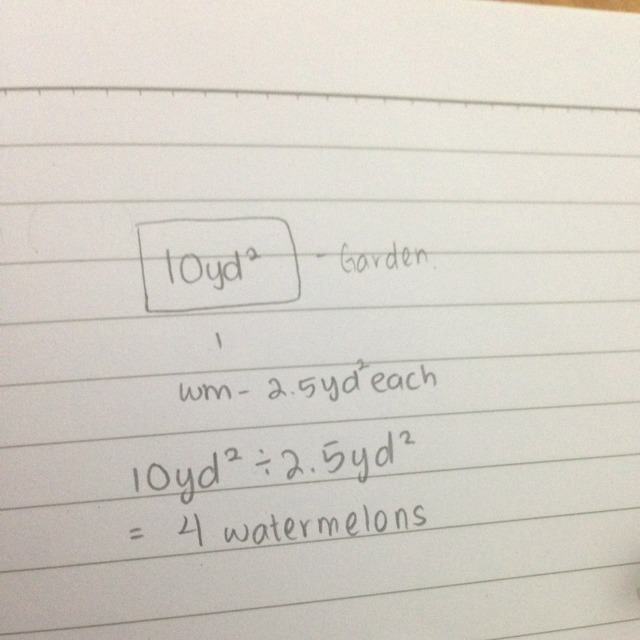 10yd² - Garden.
1
wm - 2.5yd² each
10yd² ÷ 2.5yd²
= 4 watermelons